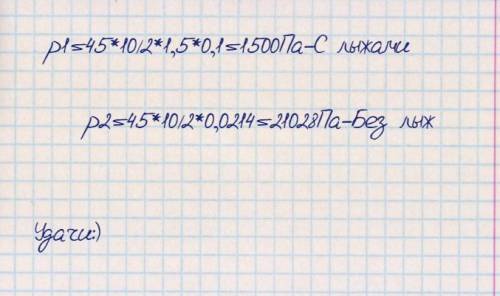 p1=45*10/2*1,5*0,1=1500Па-С лыжами
p2=45*10/2*0,0214=21028Па-Без лыж
Удачи:)